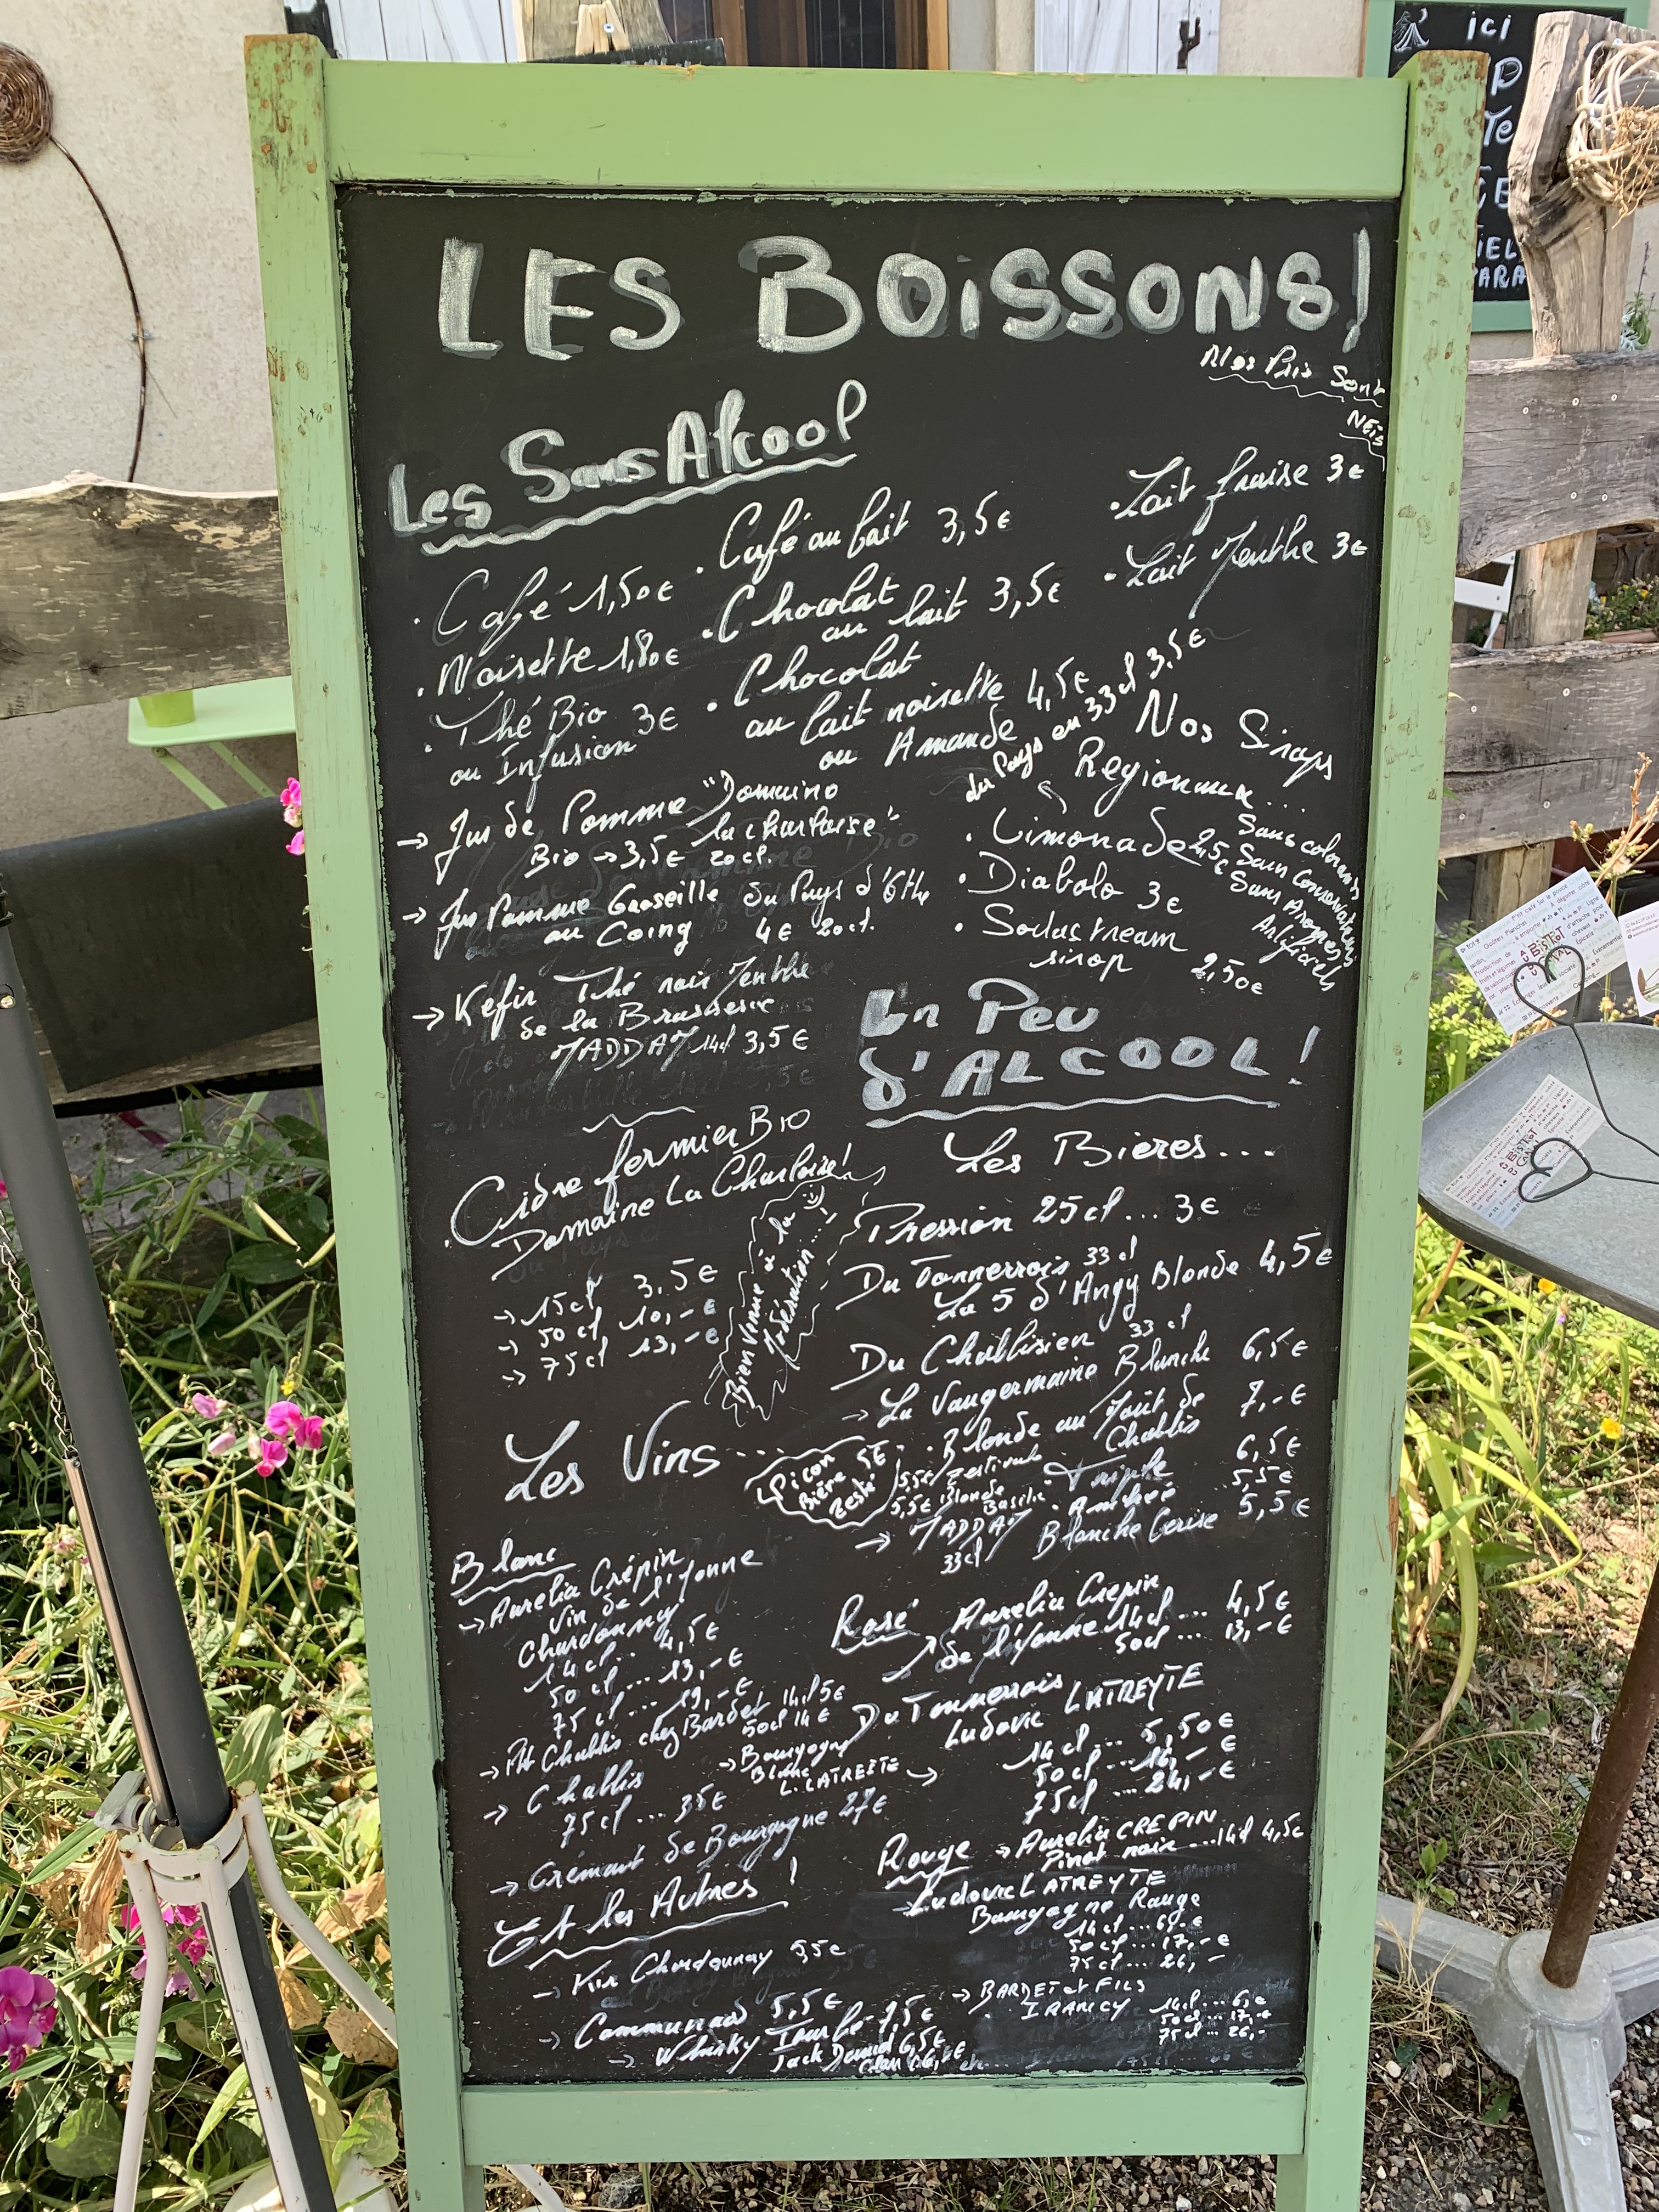 LES BOISSONS!
Nos Prix Sont
NETS
Les Sans Alcool
. Café 1,50€
. Noisette 1,80€
. Thé Bio 3€
ou Infusion
. Café au lait 3,5€
. Chocolat
au lait 3,5€
. Chocolat
au lait noisette 4,5€
ou Amande
. Lait fraise 3€
. Lait Menthe 3€
→ Jus de Pomme "Domaine
la charloise"
Bio → 3,5€ 20cl.
→ Jus Pomme Groseille du Pays d'Othe
ou Coing 4€ 20cl.
→ Kefir Thé noir Menthe
de la Brasserie
MADDAM 14cl 3,5€
du Pays en 33cl 3,5€
Nos Sirops
Regionaux...
Sans colorants
Sans Conservateurs
Sans Aromes
Artificiels
. Limonade 2,5€
. Diabolo 3€
. Sodastream
sirop 2,50€
. Cidre fermier BIO
Domaine La Charloise!
→ 15cl 3,5€
→ 50cl 10,-€
→ 75cl 13,-€
Bienvenue à la
Modération...
Un Peu
d'ALCOOL!
Les Bières...
Pression 25cl... 3€
Du Tonnerrois 33cl
La 5 d'Angy Blonde 4,5€
Du Chablisien 33cl
→ La Vaugermaine Blanche 6,5€
. Blonde au Moût de 7,-€
Chablis
Triple 6,5€
. Ambrée 5,5€
Blanche Cerise 5,5€
5,5€ Estivale
5,5€ Blonde
Basilic
→ MADDAM
33cl
Picon
Bière 5€
Zesté
Les Vins...
Blanc
→ Aurelia Crépin
Vin de l'Yonne
Chardonnay
14cl.. 4,5€
50cl... 13,-€
75cl... 19,-€
→ Ptt Chablis chez Bardet 14cl 5€
50cl 14€
→ Chablis
75cl... 35€
→ Bourgogne
Blanc
L. LATREYTE →
→ Crémant de Bourgogne 27€
Rosé Aurelia Crepin
de l'Yonne 14cl... 4,5€
50cl... 13,-€
Du Tonnerrois
Ludovic LATREYTE
14cl... 5,50€
50cl... 16,-€
75cl... 24,-€
Rouge → Aurelia CREPIN
Pinot noir ...14cl 4,5€
→ Ludovic LATREYTE
Bourgogne Rouge
14cl... 6,-€
50cl... 17,-€
75cl... 26,-
→ BARDET et FILS
. IRANCY 14cl... 6,€
50cl... 17,-€
75cl... 26,-
Et les Autres!
→ Kir Chardonnay 5,5€
→ Communard 5,5€
→ Whisky Tourbé 7,5€
Jack Daniel 6,5€
ici
BISTROT